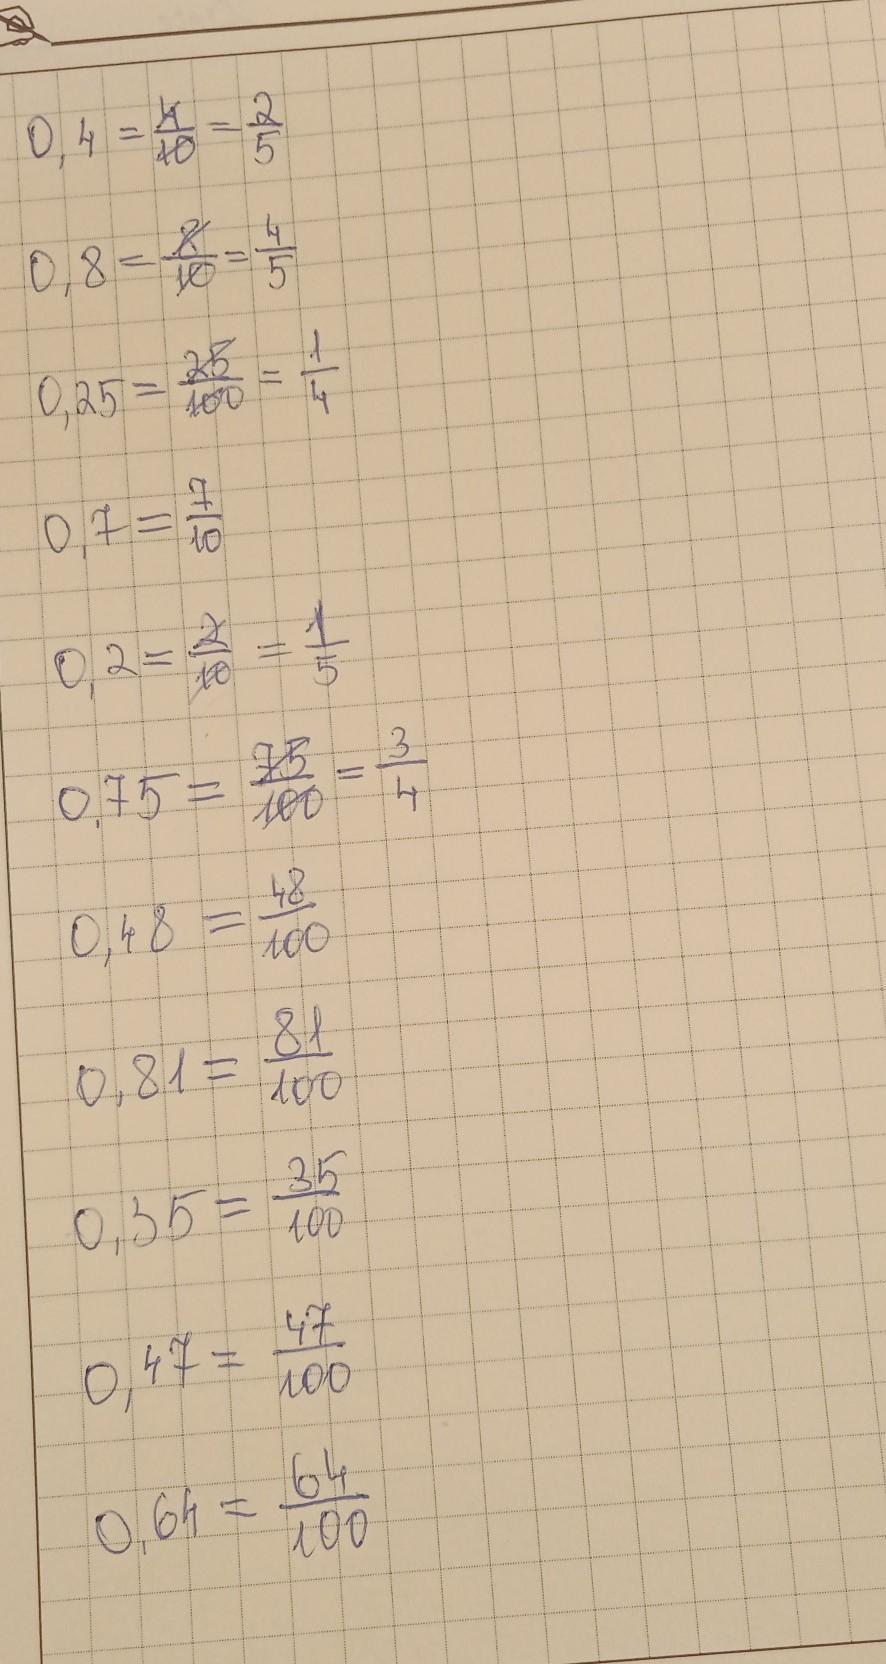 0,4 = 4/10 = 2/5
0,8 = 8/10 = 4/5
0,25 = 25/100 = 1/4
0,7 = 7/10
0,2 = 2/10 = 1/5
0,75 = 75/100 = 3/4
0,48 = 48/100
0,81 = 81/100
0,35 = 35/100
0,47 = 47/100
0,64 = 64/100